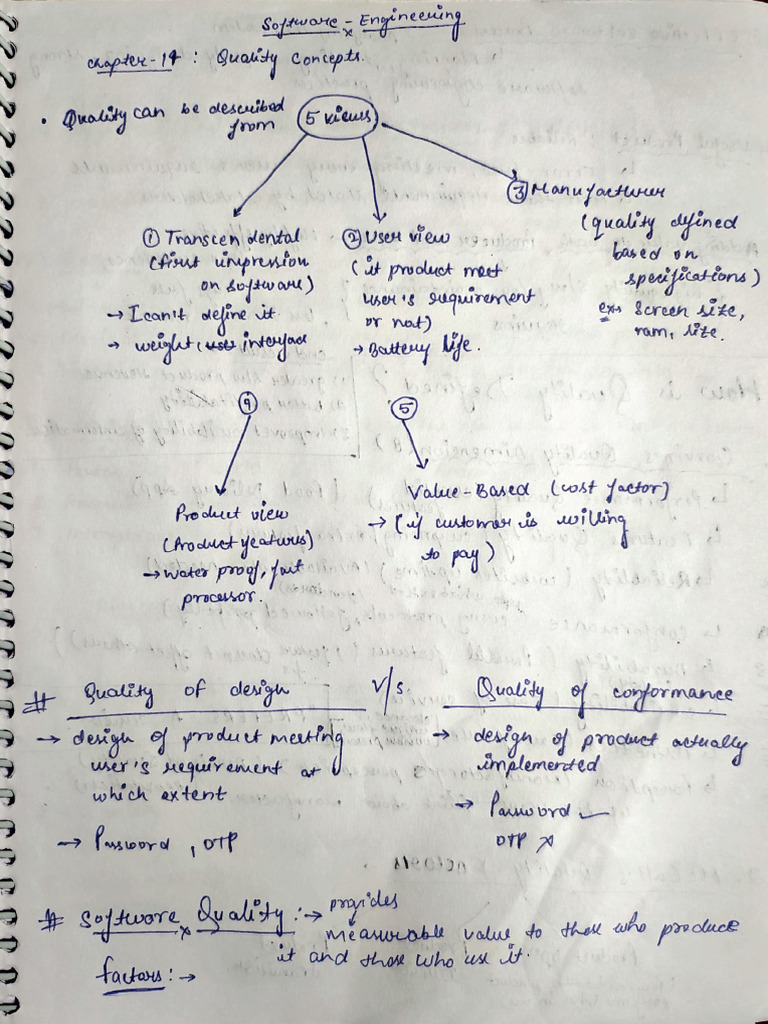 Software Engineering
Chapter-14 : Quality Concepts.
• Quality can be described from
5 views
① Transcendental
(first impression
on software)
→ I can't define it
→ weight, user interface
② User view
(if product meet
user's requirement
or not)
→ Battery life.
③ Manufacturer
(quality defined
based on
specifications)
ex → Screen size,
ram, size.
④
Product view
(Product features)
→ water proof, fast
processor.
⑤
Value-Based (cost factor)
→ (if customer is willing
to pay)
# Quality of design V/s Quality of conformance
→ design of product meeting
user's requirement at
which extent
→ Password, OTP
→ design of product actually
implemented
→ Password ✓
OTP ✗
# Software Quality :→ provides
measurable value to those who produce
it and those who use it.
factors :→